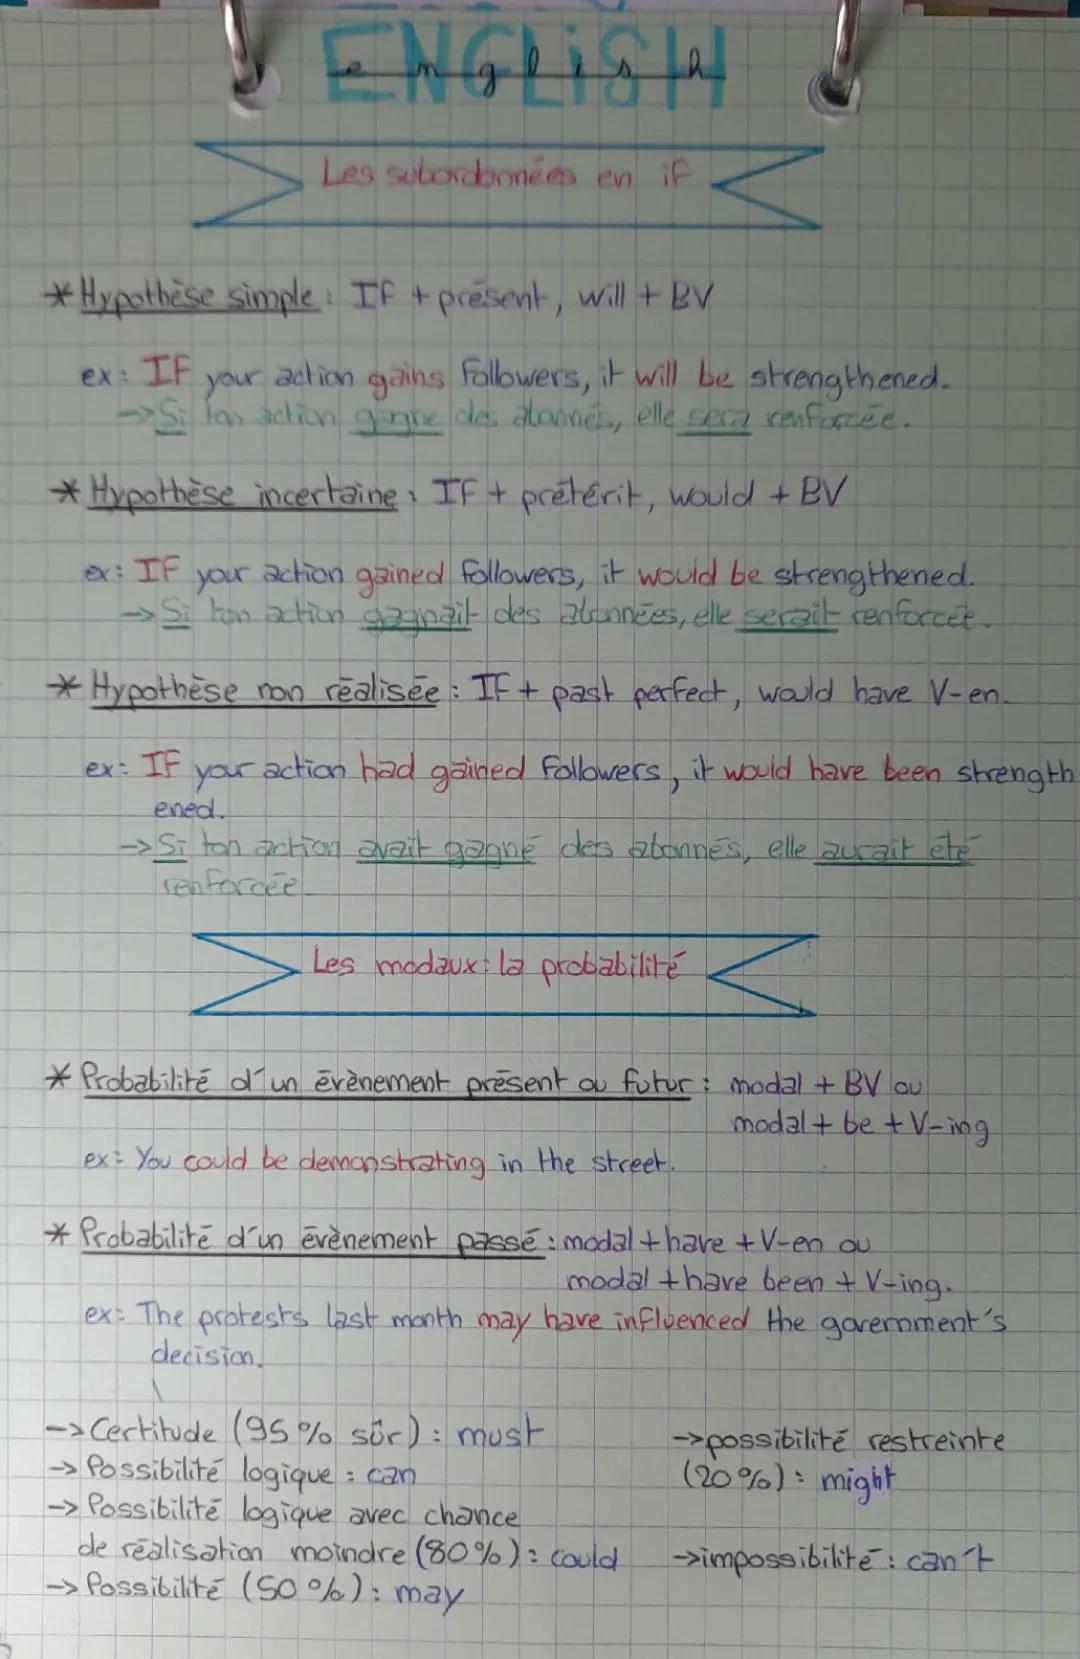 ENGLiSH
english
Les subordonnées en if
* Hypothèse simple : If + présent, will + BV
ex: If your action gains followers, it will be strengthened.
-> Si ton action gagne des abonnés, elle sera renforcée.
* Hypothèse incertaine : If + prétérit, would + BV
ex: If your action gained followers, it would be strengthened.
-> Si ton action gagnait des abonnées, elle serait renforcée.
* Hypothèse non réalisée : If + past perfect, would have V-en.
ex: If your action had gained followers, it would have been strength
ened.
-> Si ton action avait gagné des abonnés, elle aurait été
renforcée
Les modaux: la probabilité
* Probabilité d'un évènement présent ou futur : modal + BV ou
modal + be + V-ing
ex: You could be demonstrating in the street.
* Probabilité d'un évènement passé : modal + have + V-en ou
modal + have been + V-ing.
ex: The protests last month may have influenced the government's
decision.
-> Certitude (95% sûr) : must
-> Possibilité logique : can
-> Possibilité logique avec chance
de réalisation moindre (80%) : could
-> Possibilité (50%) : may
-> possibilité restreinte
(20%) : might
-> impossibilité : can't